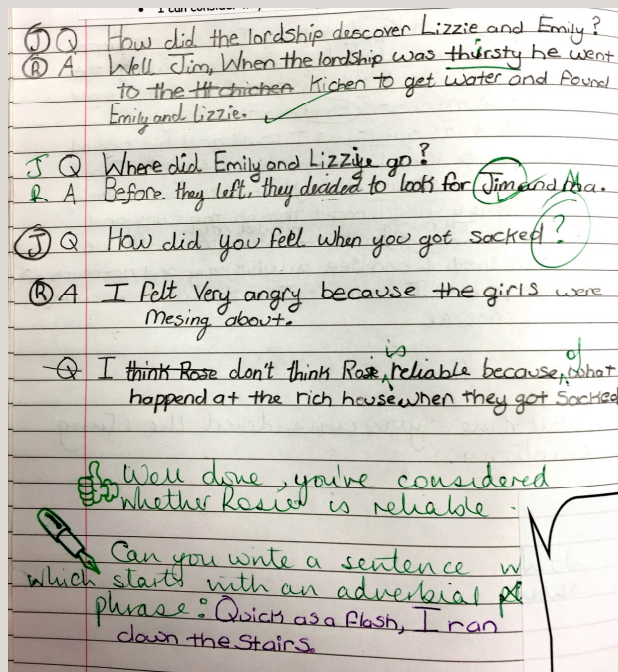 J Q How did the lordship descover Lizzie and Emily?
R A Well Jim, When the lordship was thirsty he went
to the chichen Kichen to get water and found
Emily and Lizzie.
J Q Where did Emily and Lizzie go?
R A Before they left, they decided to look for Jim and Ma.
J Q How did you feel when you got sacked?
R A I felt very angry because the girls were
mesing about.
Q I think Rose don't think Rose is reliable because of what
happend at the rich house when they got sacked
Well done, you've considered
whether Rosie is reliable.
Can you write a sentence w
which starts with an adverbial
phrase: Quick as a flash, I ran
down the stairs.